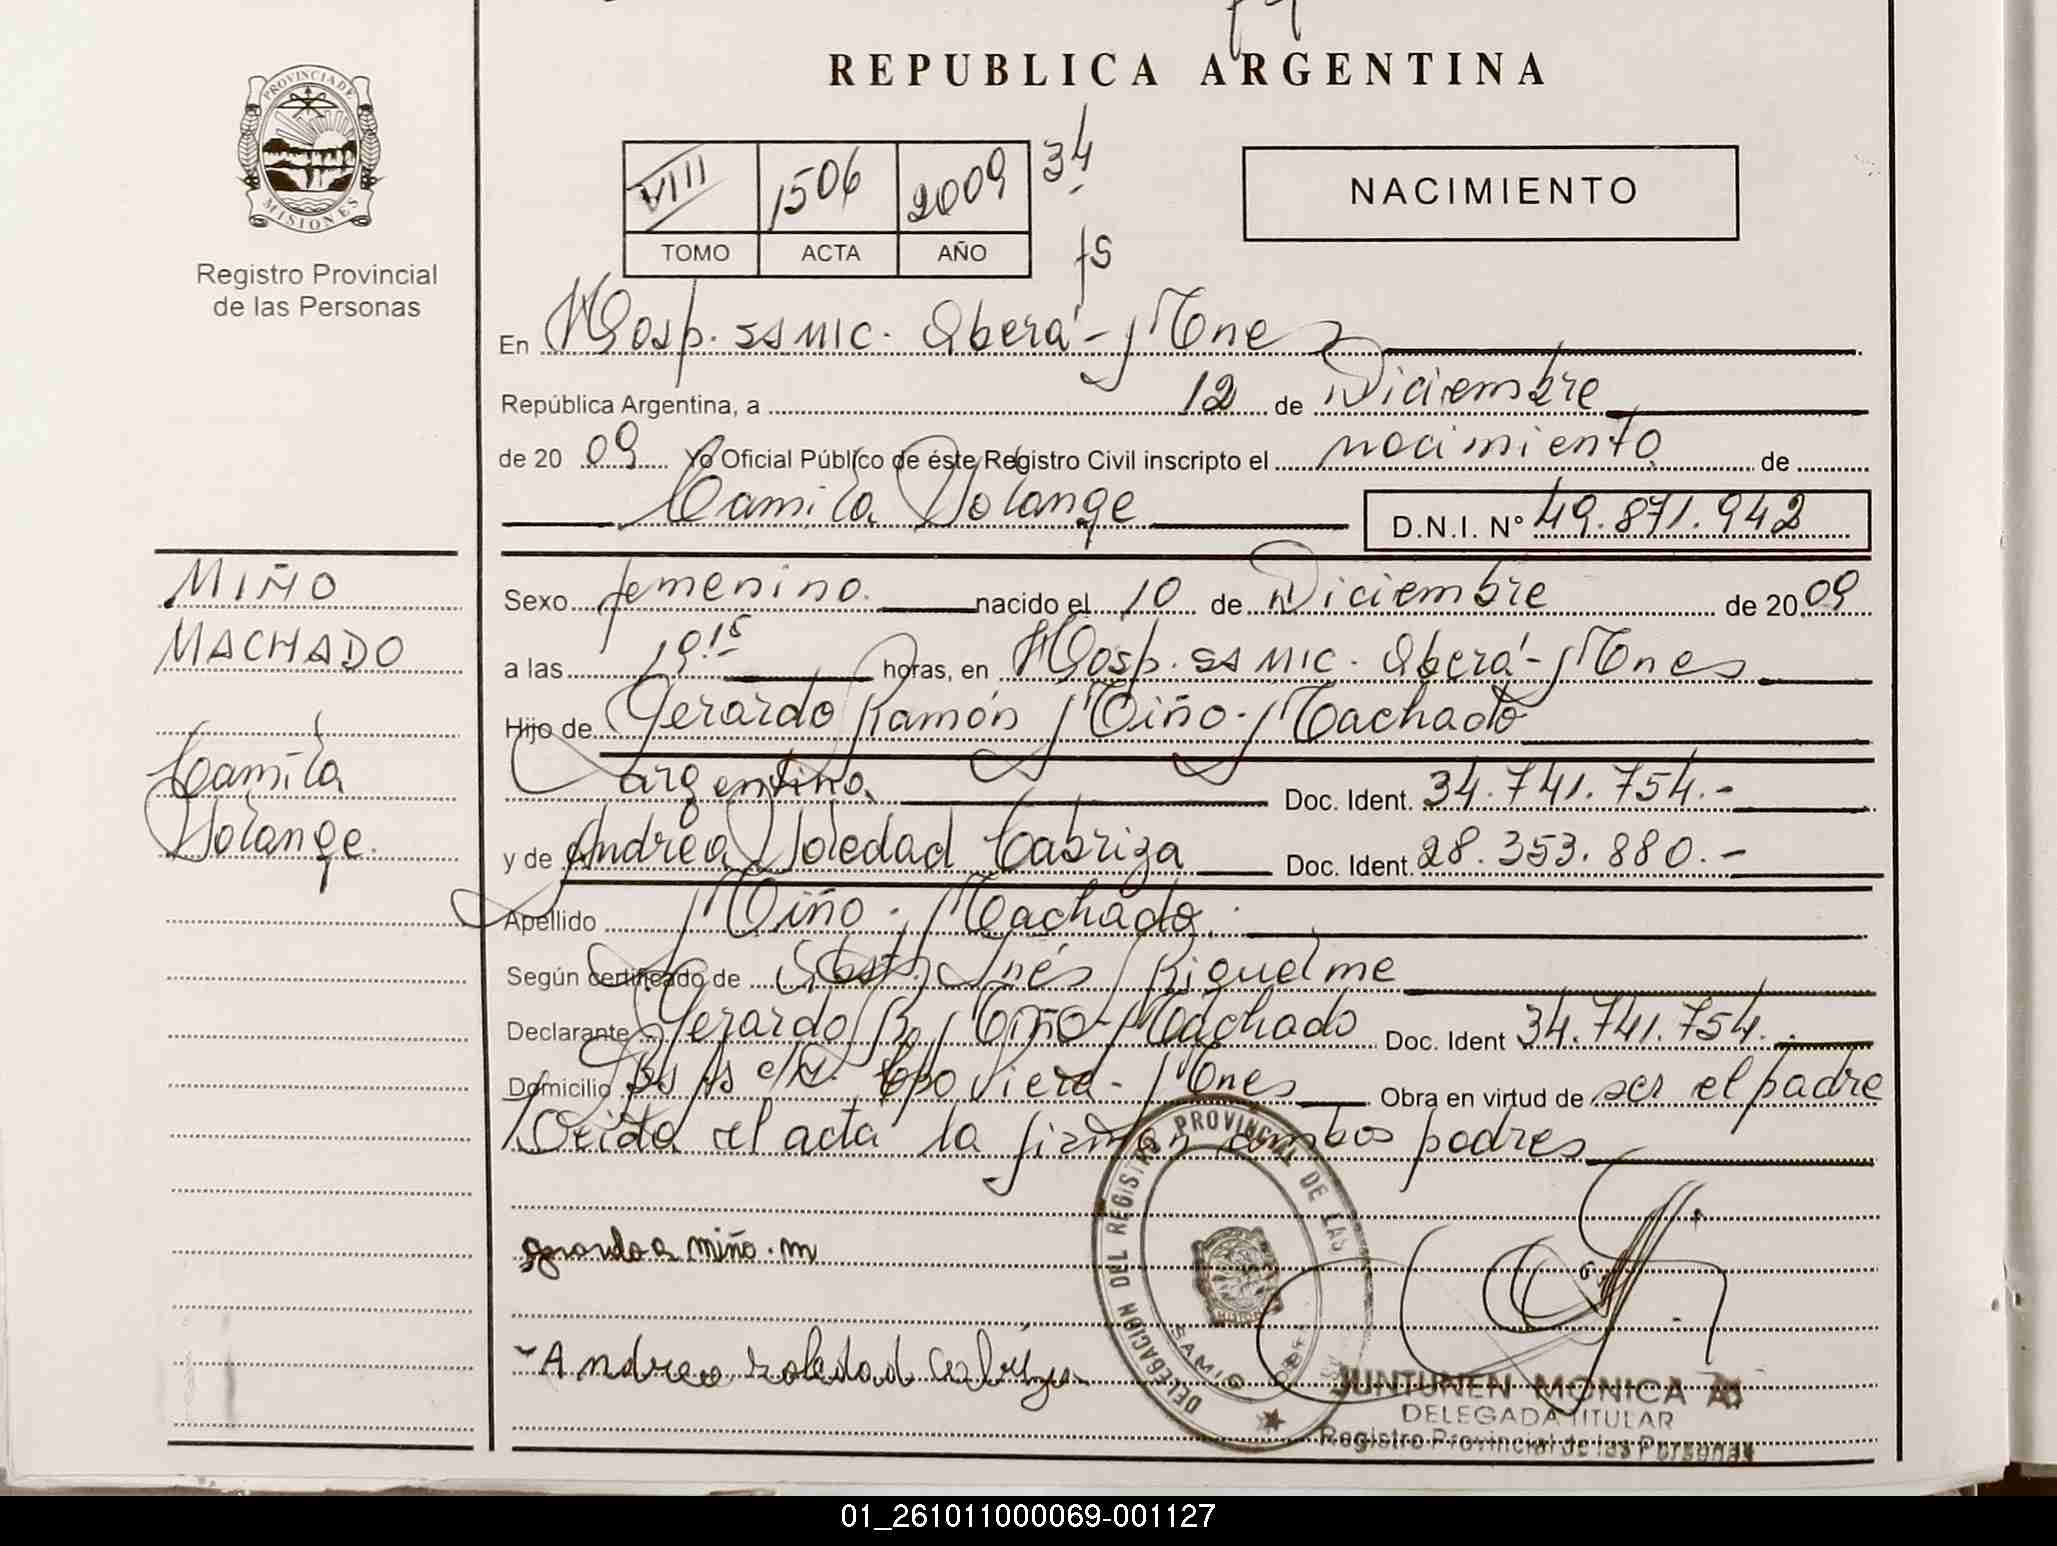 REPUBLICA ARGENTINA
PROVINCIA DE MISIONES
Registro Provincial
de las Personas
VIII 1506 2009 34
TOMO ACTA AÑO
NACIMIENTO
fs
En Hosp. SAMIC. Oberá - Mnes
República Argentina, a 12 de Diciembre
de 20 09 Yo Oficial Público de éste Registro Civil inscripto el nacimiento de
Camila Solange D.N.I. N° 49.871.942
MIÑO
MACHADO
Camila
Solange.
Sexo femenino. nacido el 10 de Diciembre de 20 09
a las 19.15 horas, en Hosp. SAMIC. Oberá - Mnes
Hijo de Gerardo Ramón Miño - Machado
argentino. Doc. Ident. 34.741.754.-
y de Andrea Soledad Cabriza Doc. Ident. 28.353.880.-
Apellido Miño - Machado.
Según certificado de Obst. Inés Riquelme
Declarante Gerardo R. Miño - Machado Doc. Ident 34.741.754.
Domicilio Bs As Cpo Viera - Mnes Obra en virtud de ser el padre
Leida el acta la firman ambos padres
gerardo miño. m
Andrea Soledad Cabriza
DELEGACION DEL REGISTRO PROVINCIAL DE LAS
SAMIC
JUNTUNEN MONICA A.
DELEGADA TITULAR
Registro Provincial de las Personas
01_261011000069-001127